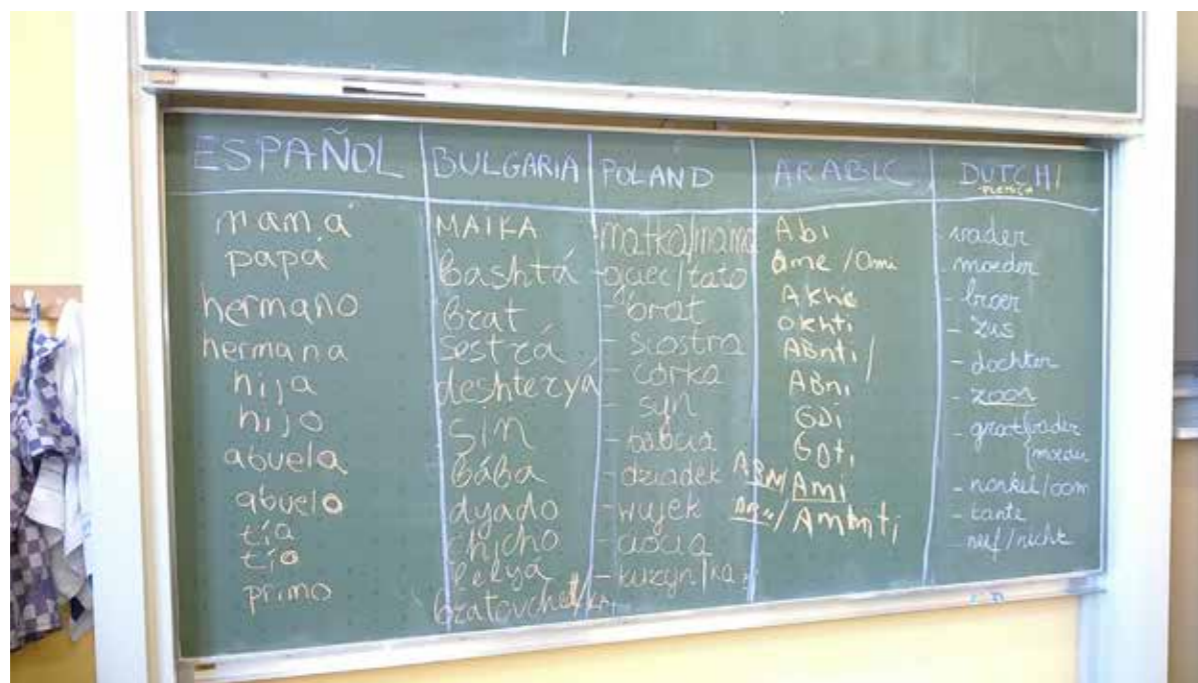 ESPAÑOL BULGARIA POLAND ARABIC DUTCH
mamá MAIKA matka/mama Abi - vader
papá bashtá - ojciec/tato ame / Omi - moeder
hermano brat - brat Akhie - broer
hermana sestrá - siostra Okhti - zus
hija deshterya - córka ABnti / - dochter
hijo sin - syn ABni - zoon
abuela bába - babcia GDi - groot{vader
abuelo dyado - dziadek GDti {moeder
tía chicho - wujek ABN/Ami - nonkel/oom
tío lelya - ciocia / Amtnti - tante
primo bratovched/ka - kuzyn/ka - neef/nicht